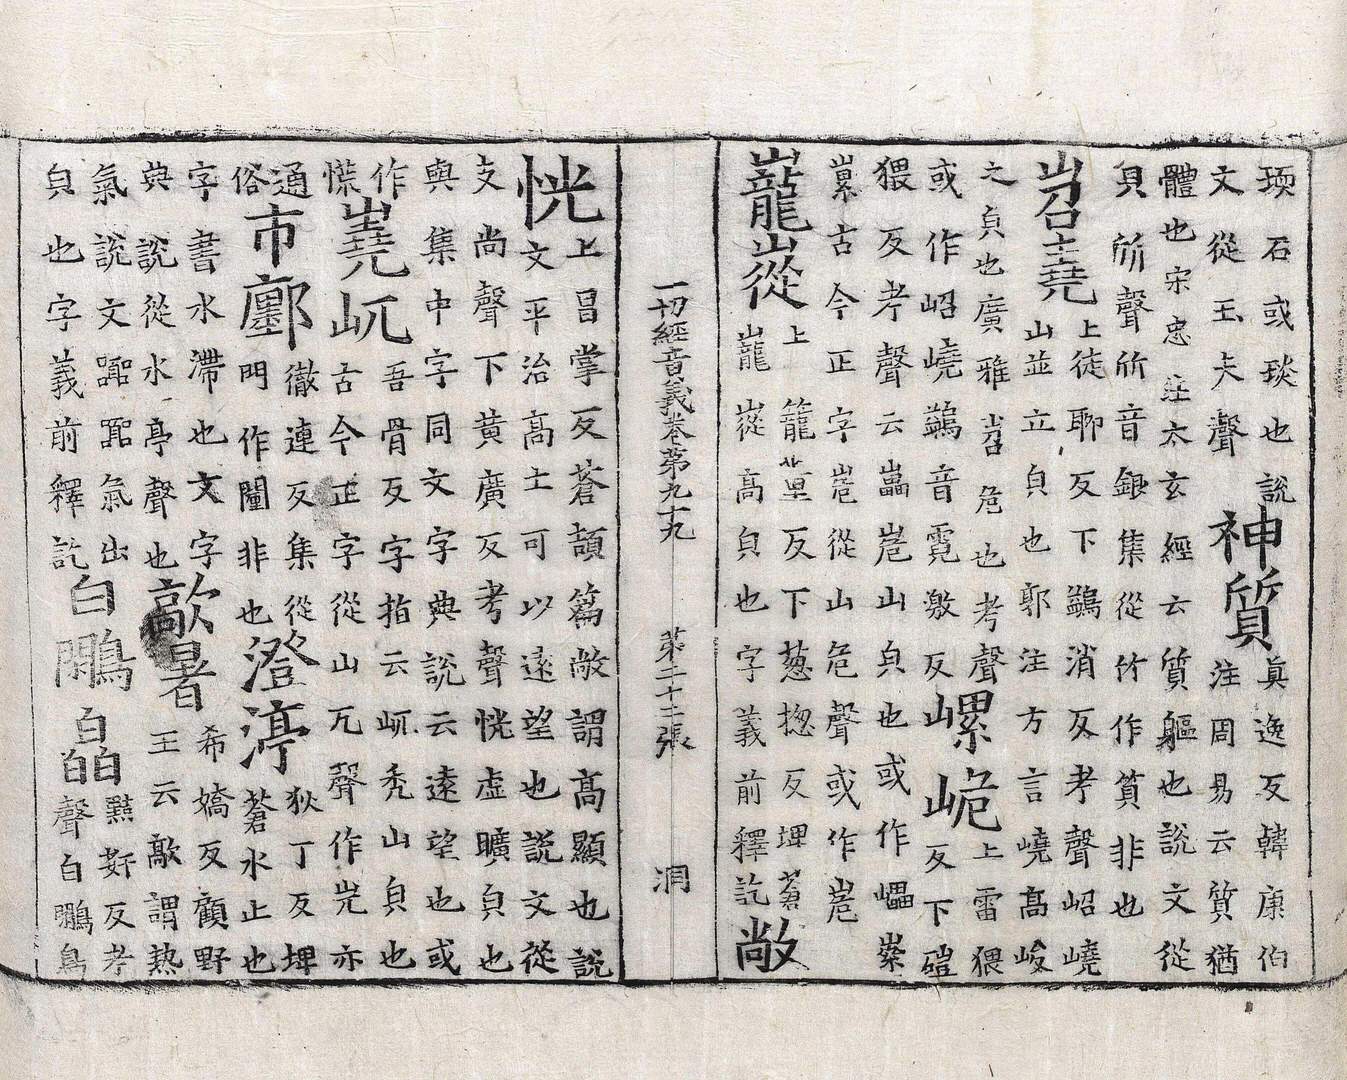 瑌石或琰也說
文從玉夫聲
神質
真逸反韓康伯
注周易云質猶
體也宋忠註太玄經云質軀也說文從
貝所聲所音銀集從竹作質非也
岧嶤
上徒聊反下鷯消反考聲岧嶢
山並立貟也郭注方言嶢高峻
之貟也廣雅岧危也考聲
或作岹嶢鷯音霓激反
峗
上雷猥
反下磑
猥反考聲云畾嵬山貟也或作㠥
古今正字嵬從山危聲或作嵬
巃嵷
上籠董反下葱揔反埤蒼
巃嵷高貟也字義前釋訖
敞
一切經音義卷第九十九 第二十二張 洞
恍
上昌掌反蒼頡篇敞謂高顯也說
文平治高土可以遠望也說文從
支尚聲下黃廣反考聲恍虛曠貟也
與集中字同文字典說云遠望也或
作
慌
嶤屼
吾骨反字指云屼禿山貟也
古今正字從山兀聲作𡵆亦
通
俗
市鄽
徹連反集從
門作闉非也
澄渟
狄丁反埤
蒼水止也
字書水滯也文字
典說從水亭聲也
歊暑
希嬌反顧野
王云歊謂熱
氣說文歊歊氣出
貟也字義前釋訖
白鷴
皛
反考
聲白鷴鳥